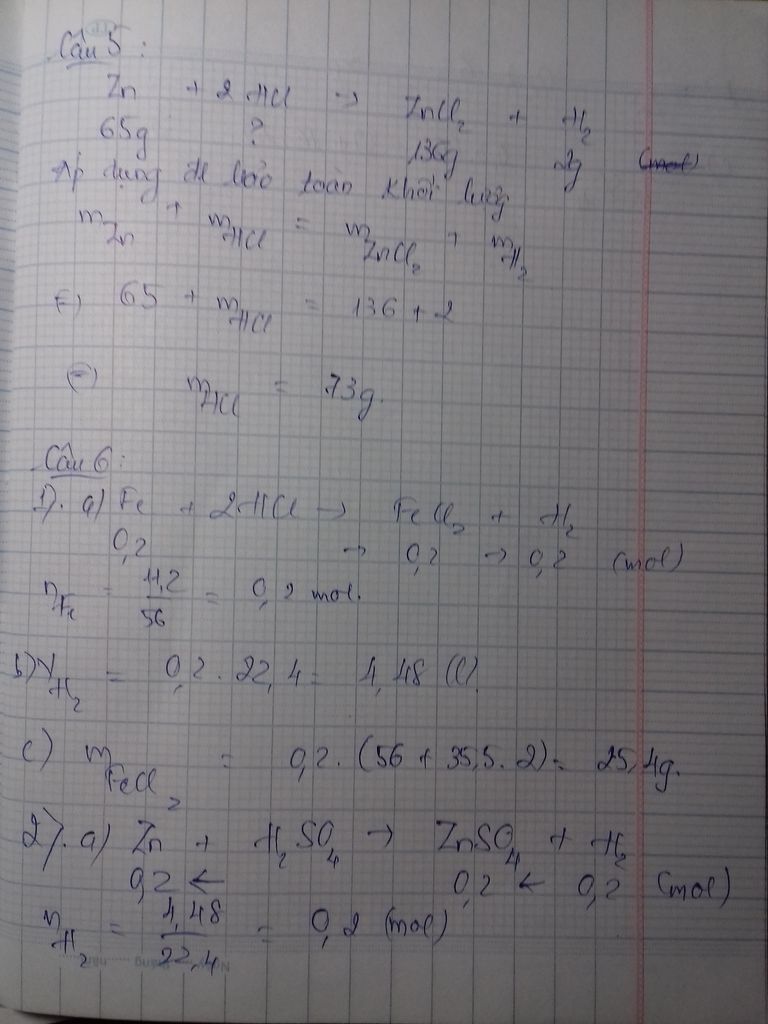 Câu 5 :
Zn + 2 HCl → ZnCl₂ + H₂
65g ? 136g 2g (mol)
Áp dụng đl bảo toàn khối lượng
m Zn + m HCl = m ZnCl₂ + m H₂
(=) 65 + m HCl = 136 + 2
(=) m HCl = 73g.
Câu 6 :
1). a) Fe + 2HCl → FeCl₂ + H₂
0,2 → 0,2 → 0,2 (mol)
n Fe = 11,2 / 56 = 0,2 mol.
b) V H₂ = 0,2 . 22,4 = 4,48 (l).
c) m FeCl₂ = 0,2 . (56 + 35,5 . 2) = 25,4g.
2). a) Zn + H₂SO₄ → ZnSO₄ + H₂
0,2 ← 0,2 ← 0,2 (mol)
n H₂ = 4,48 / 22,4 = 0,2 (mol)